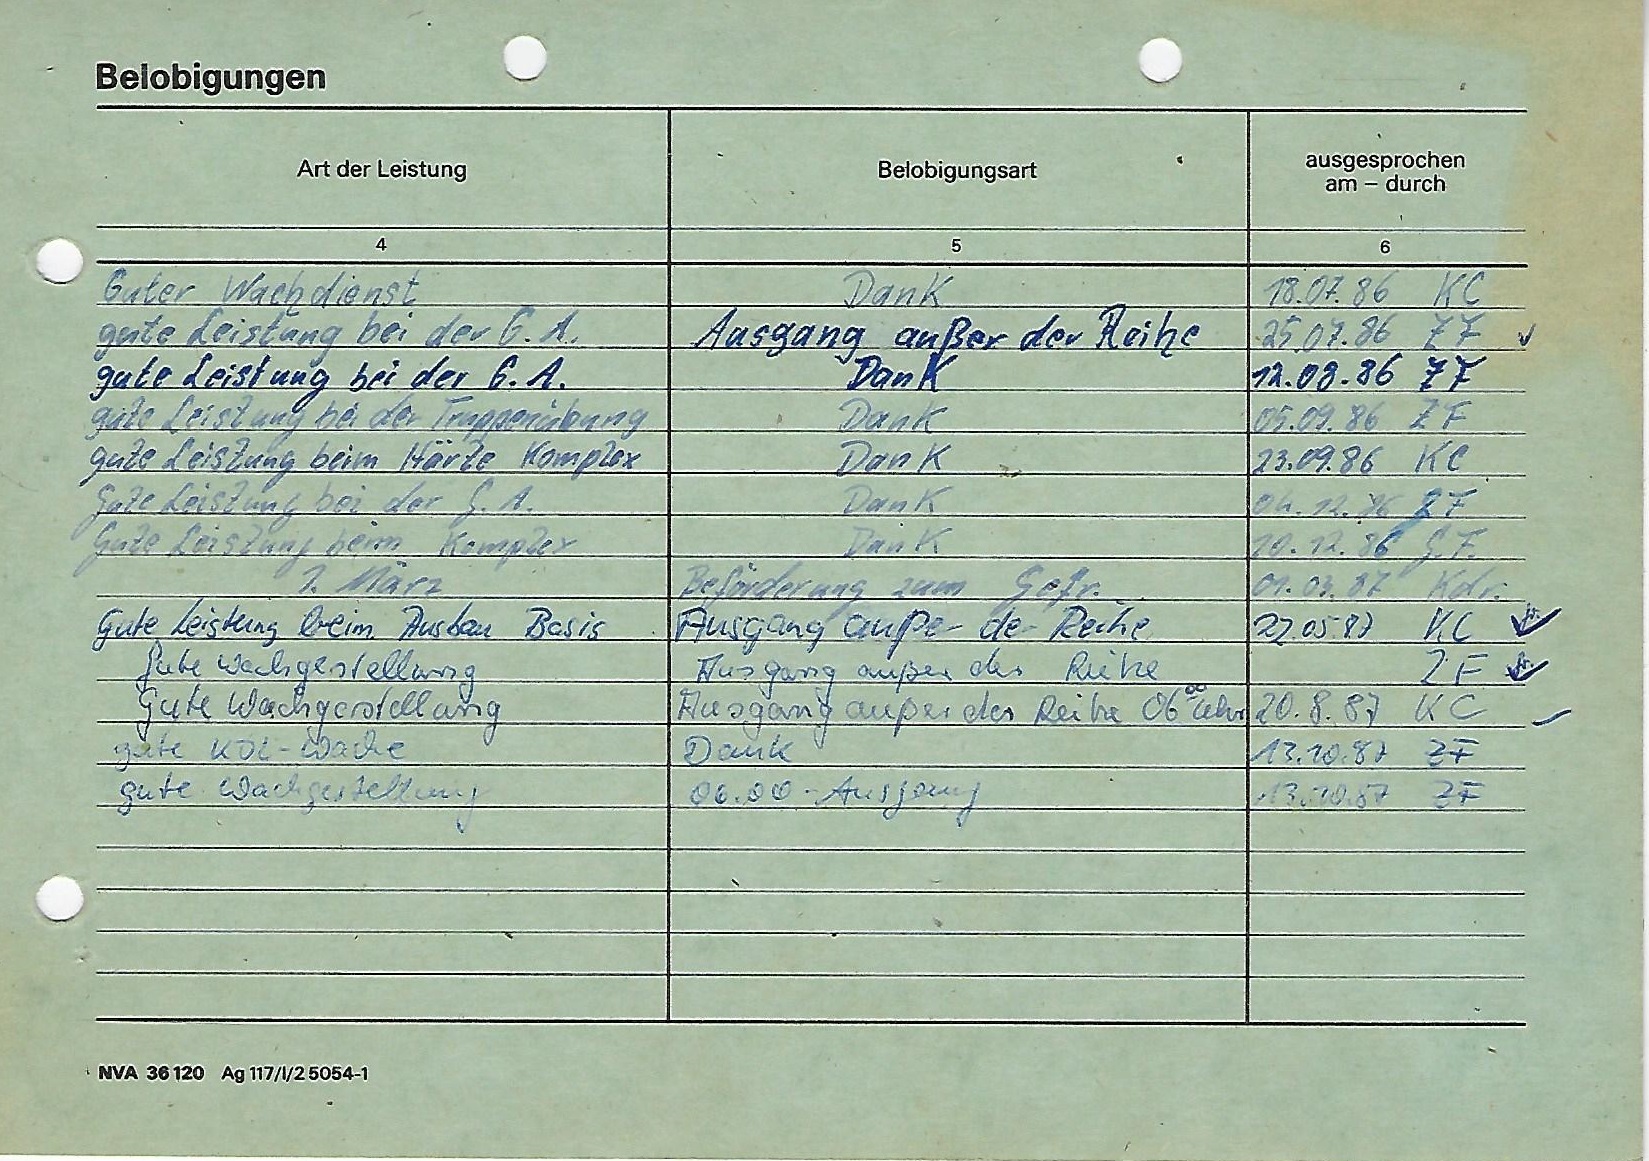 Belobigungen
Art der Leistung Belobigungsart ausgesprochen
am – durch
4 5 6
Guter Wachdienst Dank 18.07.86 KC
gute Leistung bei der G.A. Ausgang außer der Reihe 25.07.86 ZF
gute Leistung bei der G.A. Dank 12.08.86 ZF
gute Leistung bei der Truppenübung Dank 05.09.86 ZF
gute Leistung beim Härte Komplex Dank 23.09.86 KC
Gute Leistung bei der G.A. Dank 04.12.86 ZF
Gute Leistung beim Komplex Dank 10.12.86 G.F.
1. März Beförderung zum Gefr. 01.03.87 Kdr.
Gute Leistung beim Ausbau Basis Ausgang außer der Reihe 27.05.87 KC
Gute Wachgestellung Ausgang außer der Reihe ZF
Gute Wachgestellung Ausgang außer der Reihe 06⁰⁰ Uhr 20.8.87 KC
gute Wache Dank 13.10.87 ZF
gute Wachgestellung 06.00-Ausgang 13.10.87 ZF
NVA 36120 Ag 117/I/2 5054-1